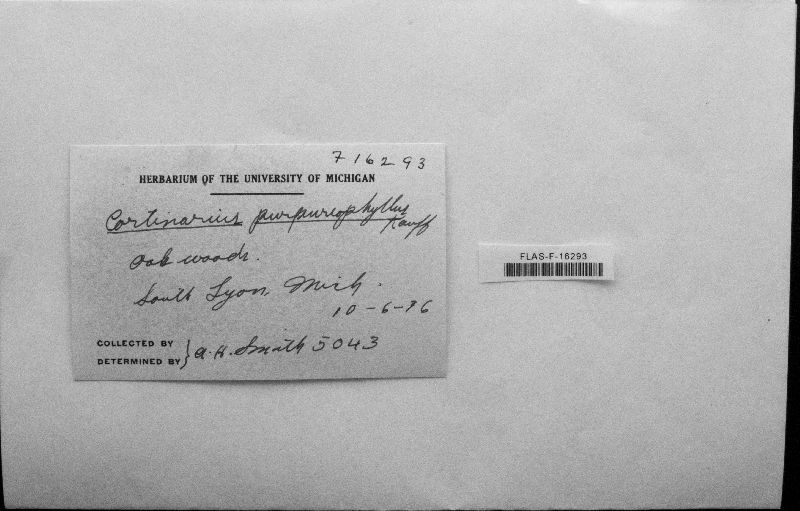 F16293
HERBARIUM OF THE UNIVERSITY OF MICHIGAN
Cortinarius purpureophyllus Kauff
Oak woods.
South Lyon, Mich.
10-6-36
COLLECTED BY
DETERMINED BY } A.H. Smith 5043
FLAS-F-16293